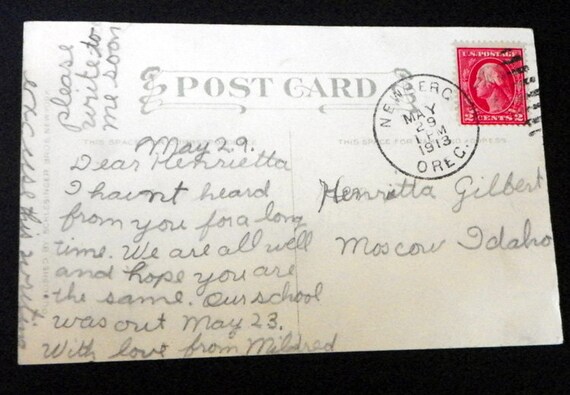 POST CARD
U.S. POSTAGE
2 CENTS 2
NEWBERG
MAY
29
PM
1913
OREG.
THIS SPACE FOR
May 29.
Dear Henrietta
I havnt heard
from you for a long
time. We are all well
and hope you are
the same. Our school
was out May 23.
With love from Mildred
please
write to
me soon
excuse this writing
Henritta Gilbert
Moscow Idaho